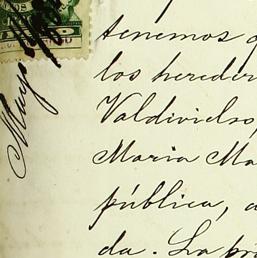 tenemos
los hereder
Valdivielso,
Maria Ma
pública, a
da. La pro
Mayo